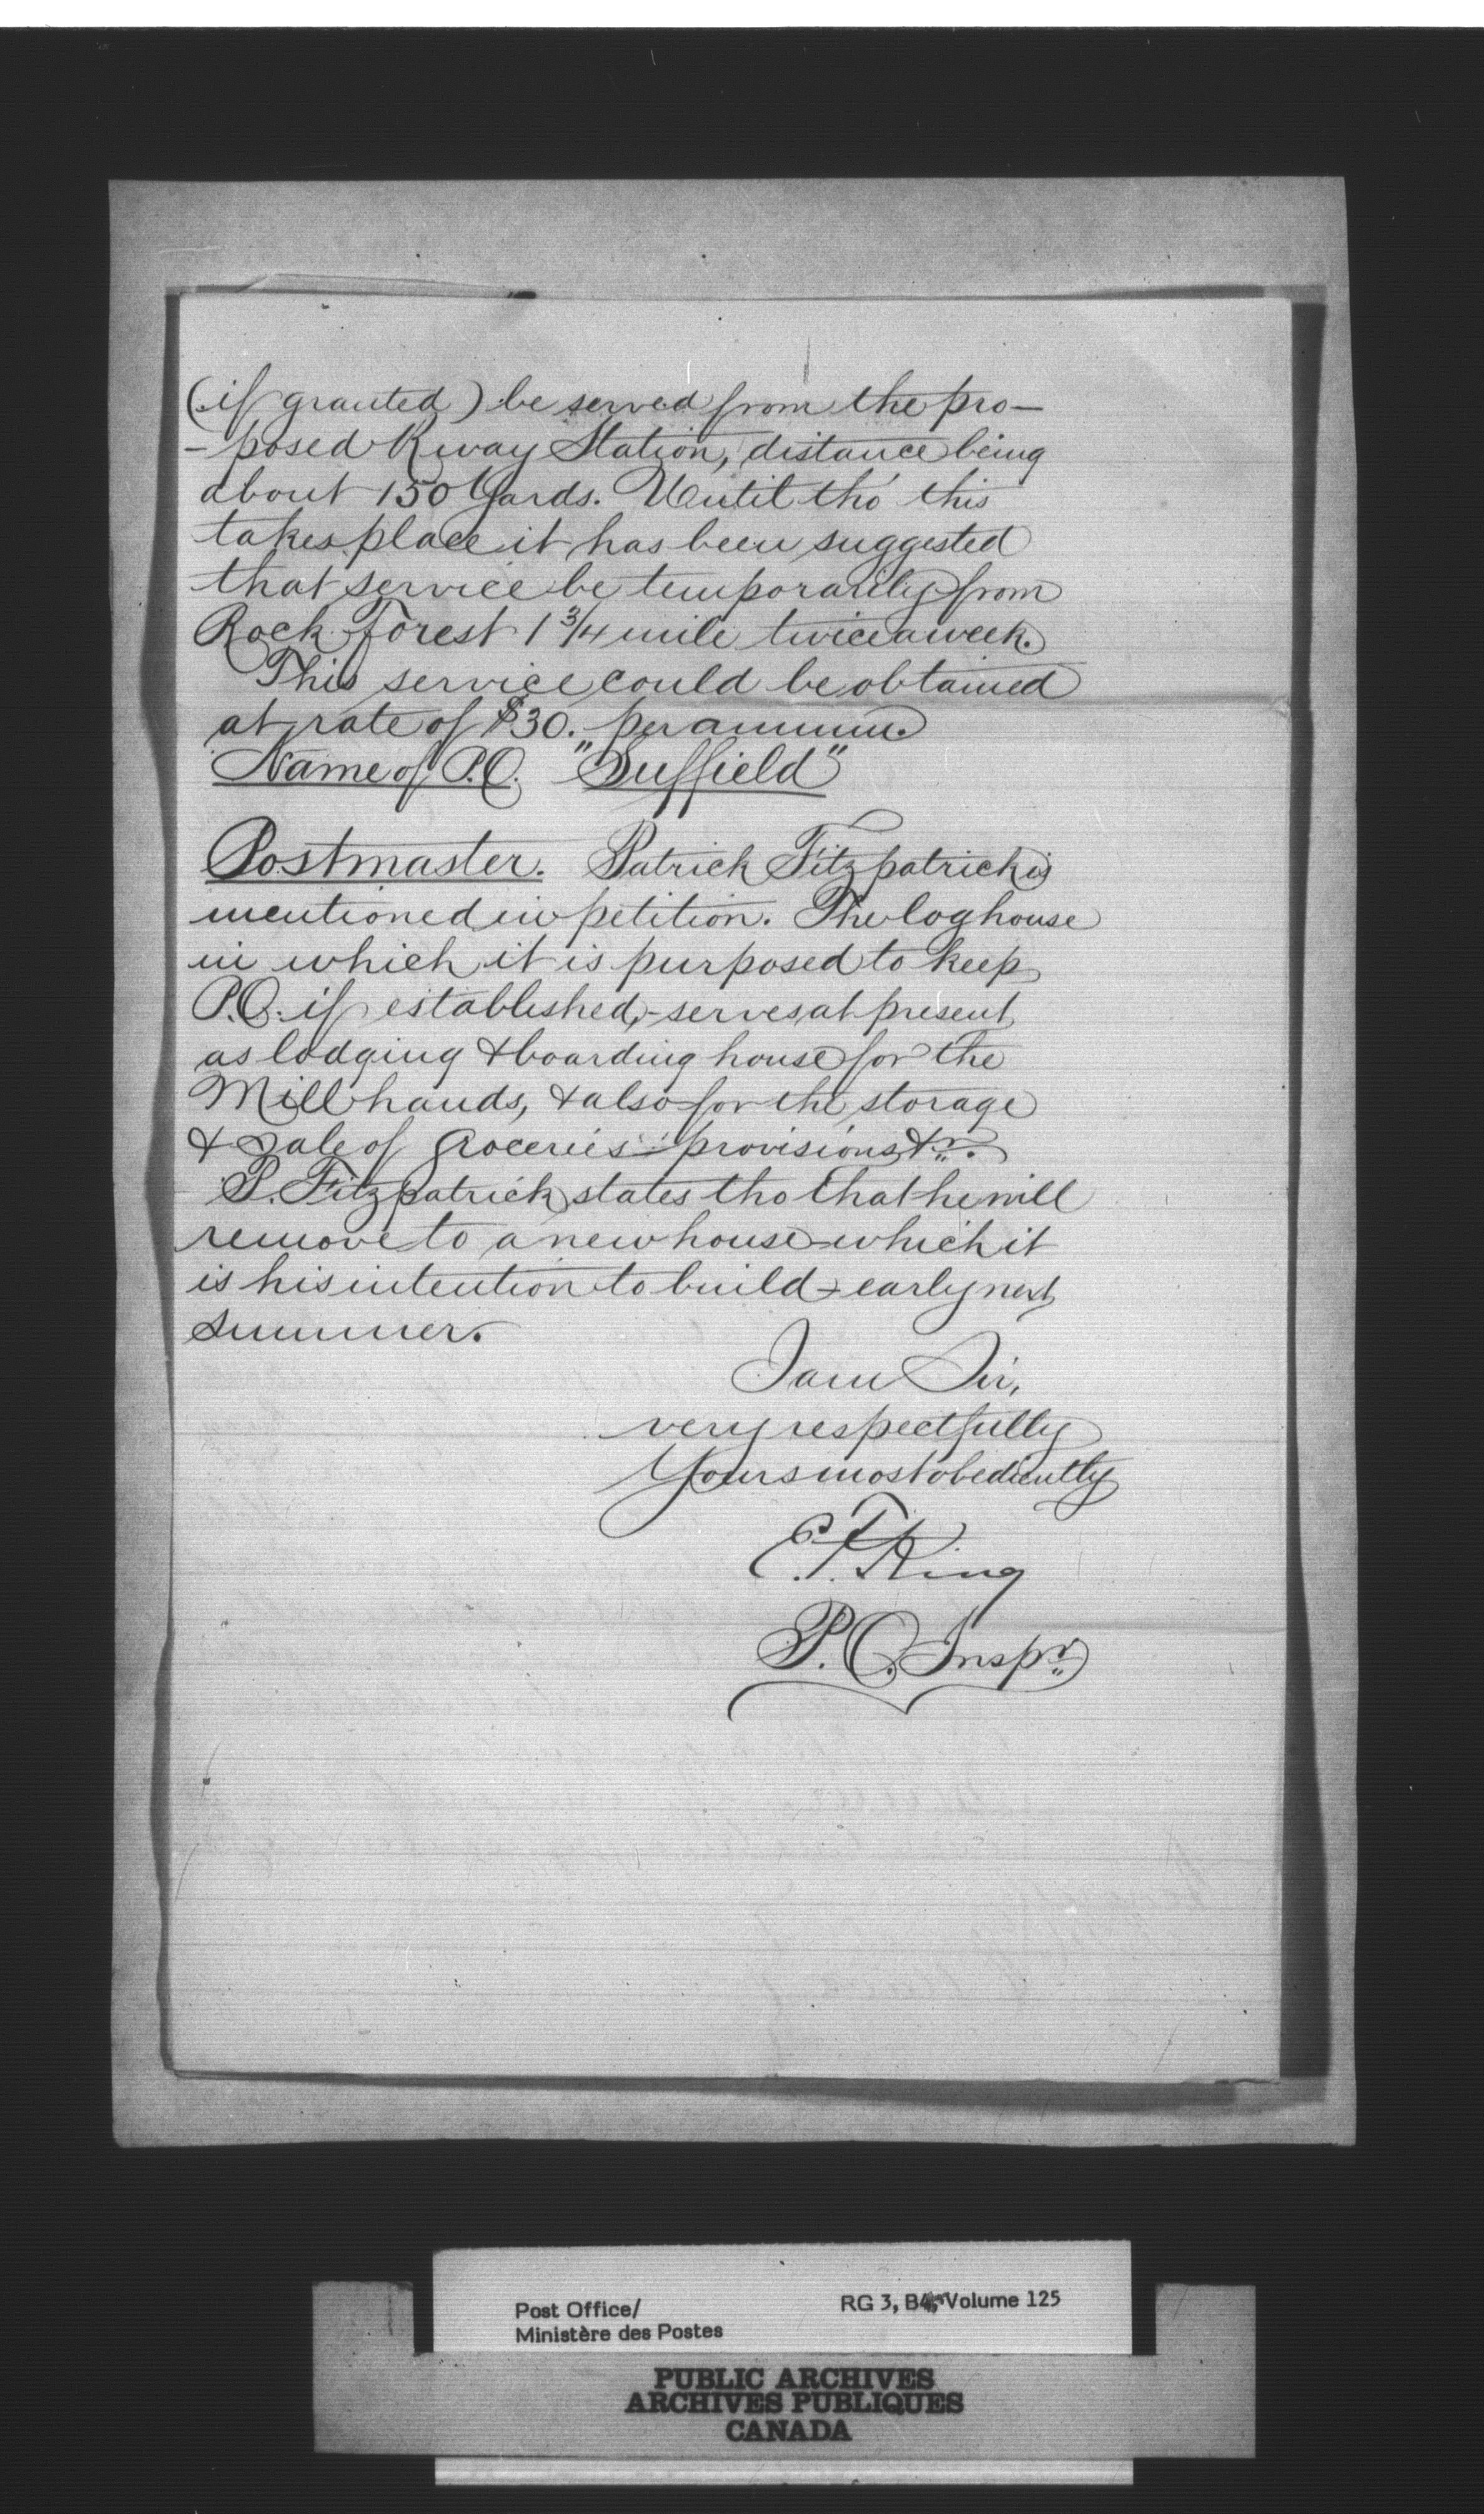 (if granted) be served from the pro-
-posed Rway Station, distance being
about 150 Yards. Until tho' this
takes place it has been suggested
that service be temporarily from
Rock Forest 1 3/4 mile twice a week.
This service could be obtained
at rate of $30. per annum.
Name of P.O. "Suffield"
Postmaster. Patrick Fitzpatrick is
mentioned in petition. The log house
in which it is purposed to keep
P.O. if established,- serves at present
as lodging & boarding house for the
Mill hands, & also for the storage
& sale of groceries provisions &c.
P. Fitzpatrick states tho that he will
remove to a new house which it
is his intention to build - early next
summer.
I am Sir,
very respectfully
Yours most obediently
E.T. King
P.O. Inspr.
Post Office/
Ministère des Postes
RG 3, B4, Volume 125
PUBLIC ARCHIVES
ARCHIVES PUBLIQUES
CANADA